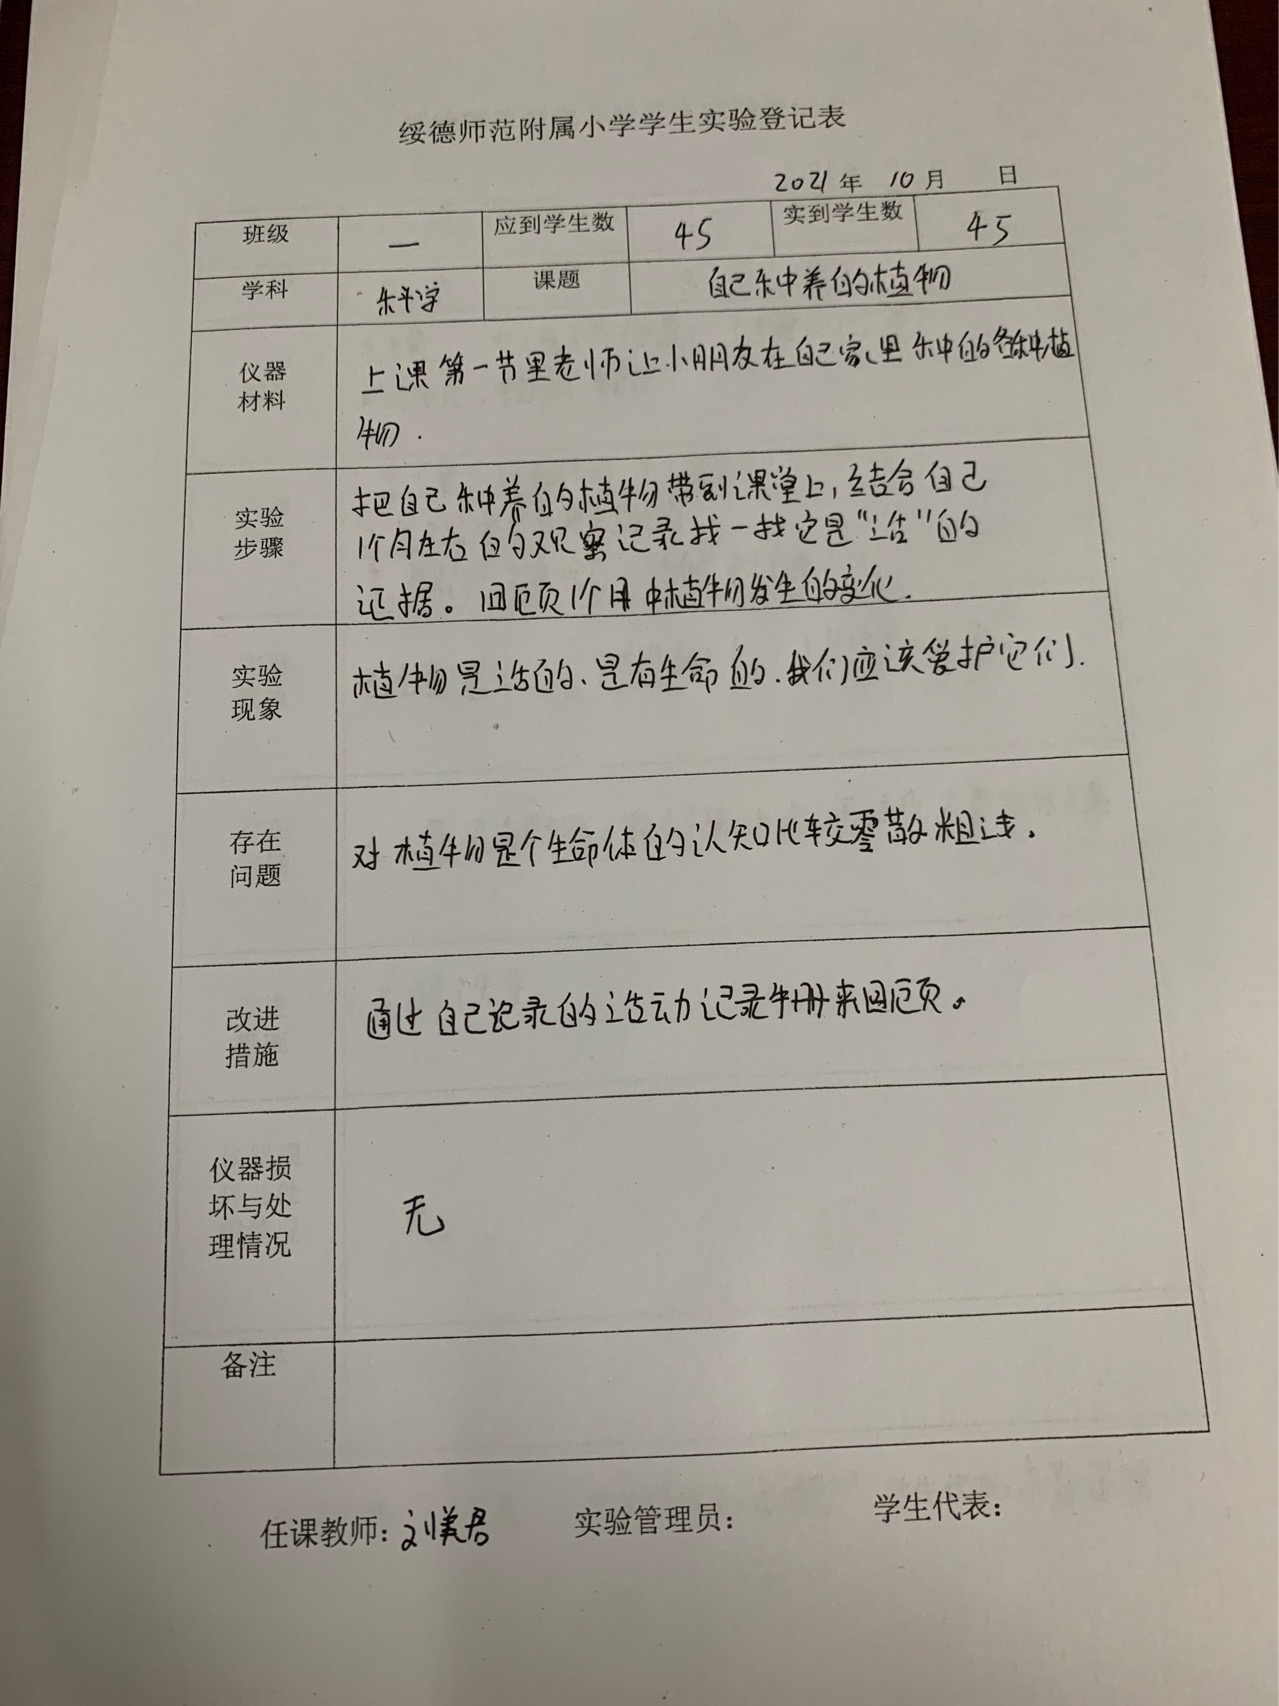 绥德师范附属小学学生实验登记表
2021年 10月 日
班级 一 应到学生数 45 实到学生数 45
学科 科学 课题 自己种养的植物
仪器
材料
上课第一节里老师让小朋友在自己家里种的各种植
物.
实验
步骤
把自己种养的植物带到课堂上,结合自己
1个月左右的观察记录找一找它是“活”的
证据。回顾1个月中植物发生的变化.
实验
现象
植物是活的、是有生命的.我们应该爱护它们.
存在
问题
对植物是个生命体的认知比较零散粗浅.
改进
措施
通过自己记录的活动记录手册来回顾。
仪器损
坏与处
理情况
无
备注
任课教师:刘美君 实验管理员: 学生代表: